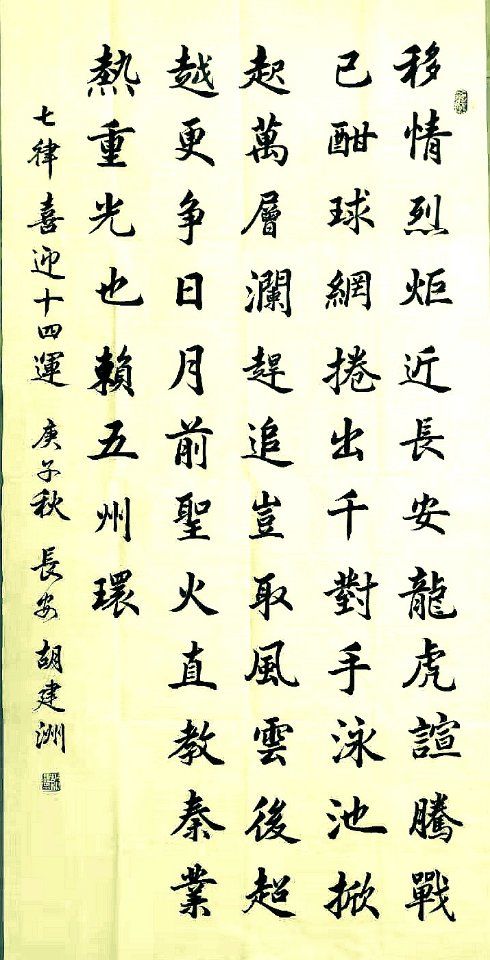 移情烈炬近長安龍虎諠騰戰
已酣球網捲出千對手泳池掀
起萬層瀾趕追豈取風雲後超
越更争日月前聖火直教秦業
熱重光也賴五州環
七律 喜迎十四運 庚子秋 長安 胡建洲